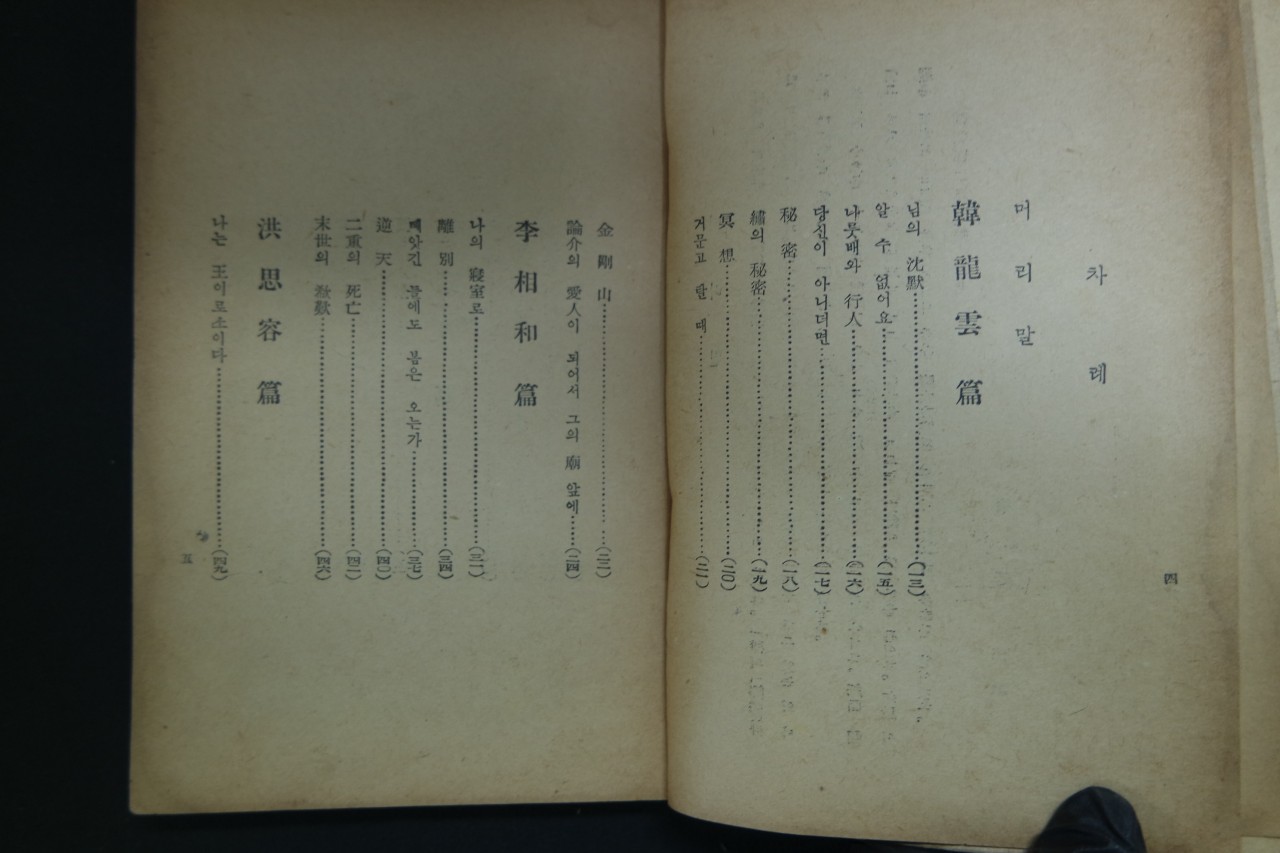 차례
머리말
韓龍雲篇
님의 沈默 (一三)
알 수 없어요 (一五)
나룻배와 行人 (一六)
당신이 아니더면 (一七)
秘密 (一八)
繡의 秘密 (一九)
冥想 (二〇)
거문고 탈 때 (二一)
四
金剛山 (二二)
論介의 愛人이 되어서 그의 廟 앞에 (二四)
李相和篇
나의 寢室로 (三一)
離別 (三四)
빼앗긴 들에도 봄은 오는가 (三七)
逆天 (四〇)
二重의 死亡 (四二)
末世의 欷歎 (四六)
洪思容篇
나는 王이로소이다 (四九)
五